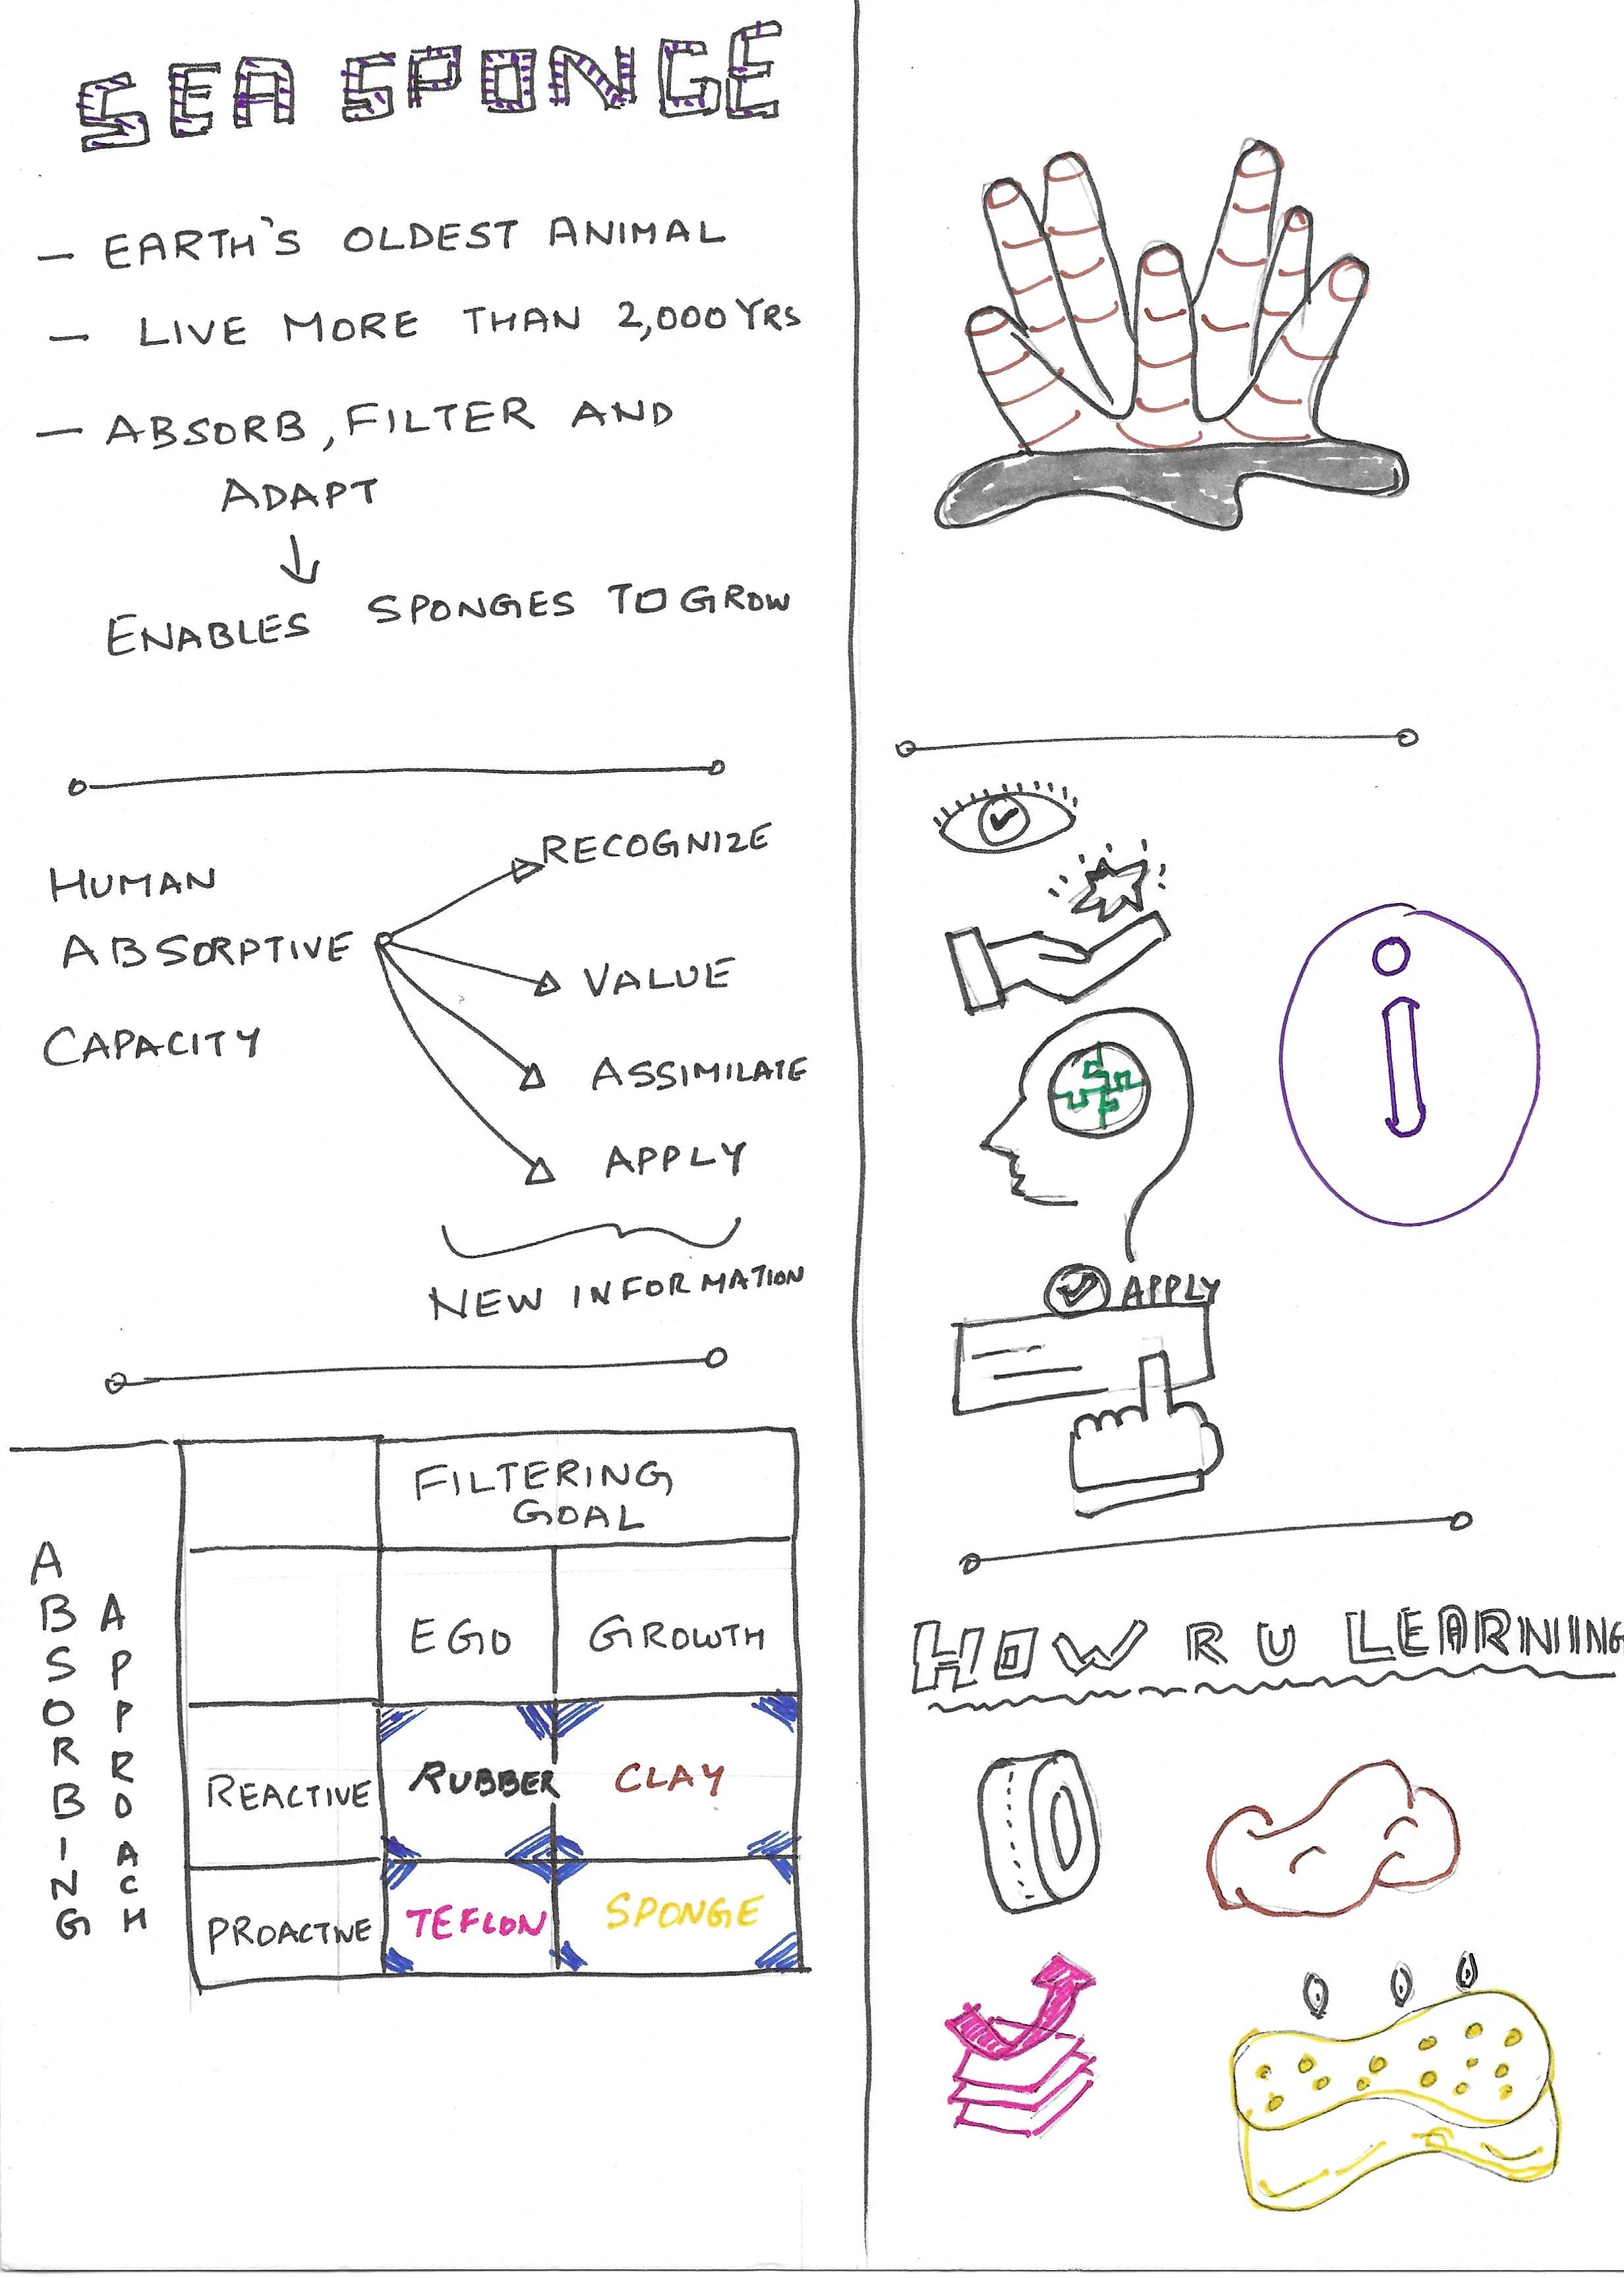 SEA SPONGE
— EARTH'S OLDEST ANIMAL
— LIVE MORE THAN 2,000 YRS
— ABSORB, FILTER AND
ADAPT
↓
ENABLES SPONGES TO GROW
HUMAN
ABSORPTIVE
CAPACITY
RECOGNIZE
VALUE
ASSIMILATE
APPLY
NEW INFORMATION
FILTERING
GOAL
EGO GROWTH
ABSORBING
APPROACH
REACTIVE RUBBER CLAY
PROACTIVE TEFLON SPONGE
i
APPLY
HOW R U LEARNING